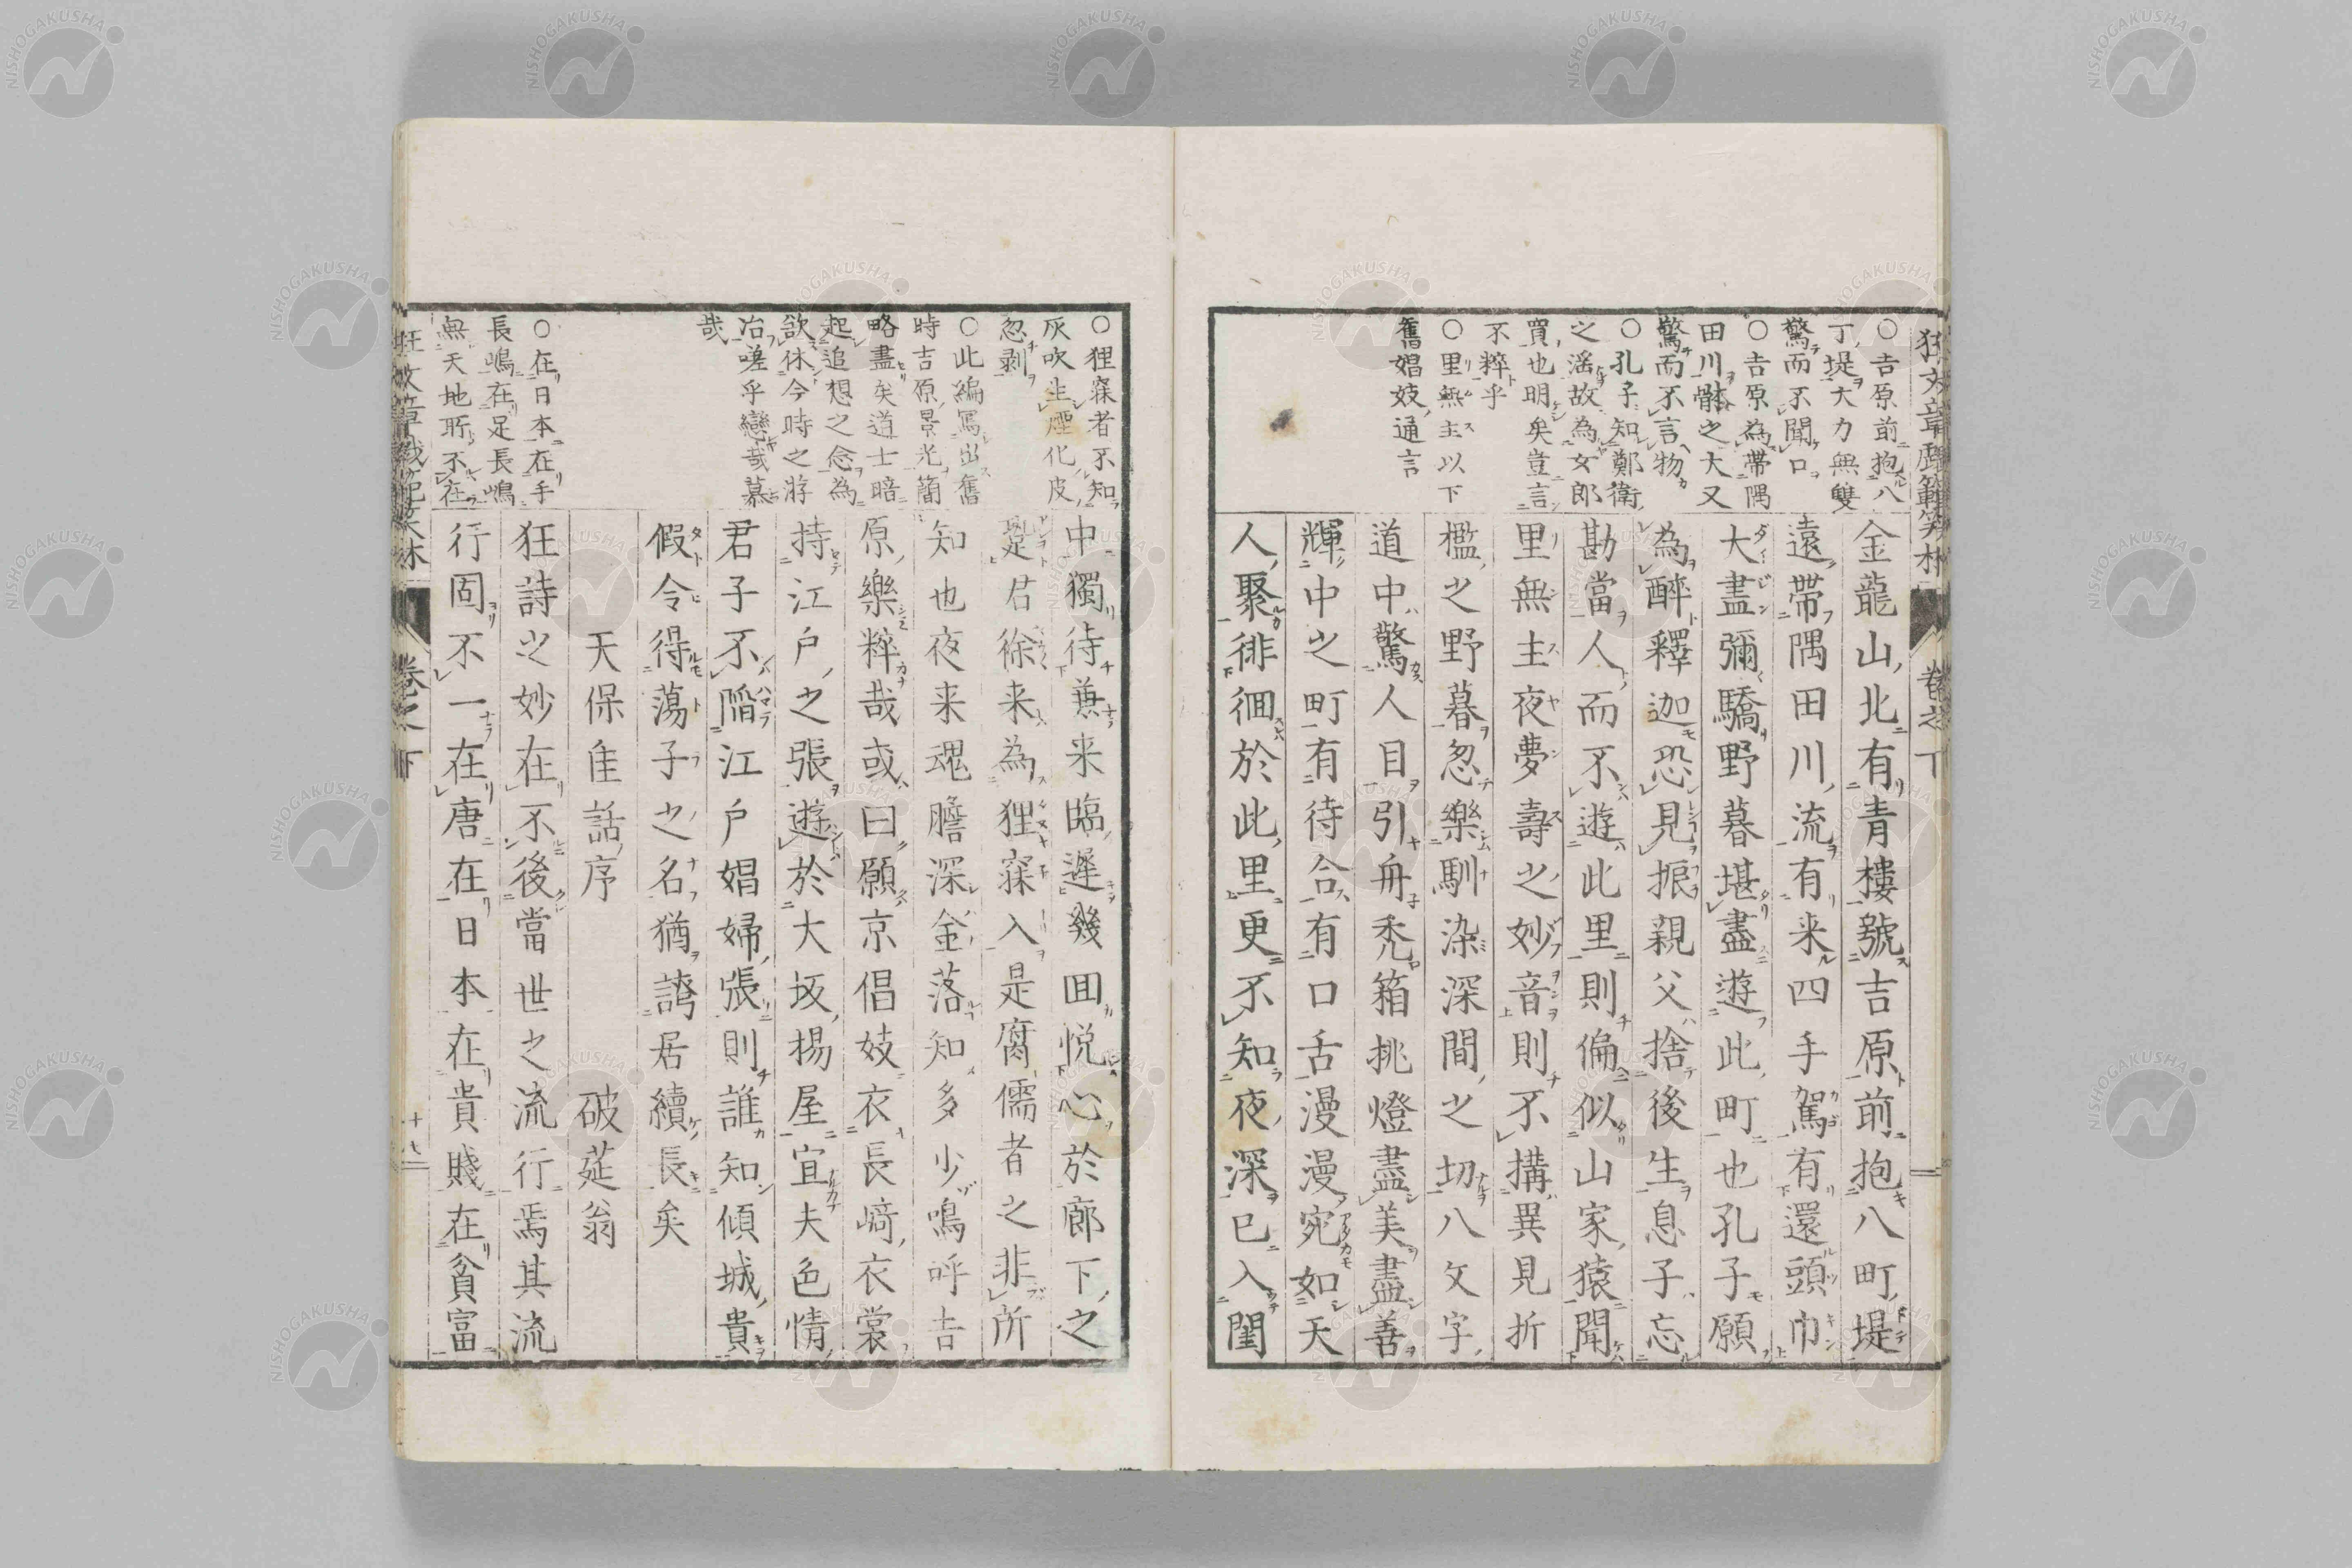 狂文章軌範笑林 卷之下
○吉原前抱八
丁堤大力無雙
驚而不聞口
○吉原為帶隅
田川骵之大又
驚而不言物
○孔子知鄭衛
之滛故為女郎
買也明矣豈言
不粹乎
○里無主以下
舊娼妓通言
金龍山北有青樓號吉原前抱八町堤
遠帶隅田川流有来四手駕有還頭巾
大盡彌驕野暮堪盡遊此町也孔子願
為醉釋迦恐見振親父捨後生息子忘
勘當人而不遊此里則偏似山家猿聞
里無主夜夢壽之妙音則不搆異見折
檻之野暮忽樂馴染深間之切八文字
道中驚人目引舟禿箱挑燈盡美盡善
輝中之町有待合有口舌漫漫宛如天
人聚徘徊於此里更不知夜深已入閨
○狸寐者不知
灰吹生煙化皮
忽剥
○此編寫出舊
時吉原景光簡
略盡矣道士暗
起追想之念為
欲休今時之游
冶嗟乎戀哉慕
哉
○在日本在手
長嶋在足長嶋
無天地所不在
中獨待兼来臨遲幾囬悦心於廊下之
跫君徐来為狸寐入是腐儒者之非所
知也夜来魂膽深金落知多少鳴呼吉
原樂粹哉或曰願京倡妓衣長﨑衣裳
持江戶之張遊於大坂揚屋宜夫色情
君子不陷江戶娼婦張則誰知傾城貴
假令得蕩子之名猶謣居續長矣
天保佳話序 破莚翁
狂詩之妙在不後當世之流行焉其流
行固不一在唐在日本在貴賤在貧富
狂文章軌範笑林 卷之下 十八